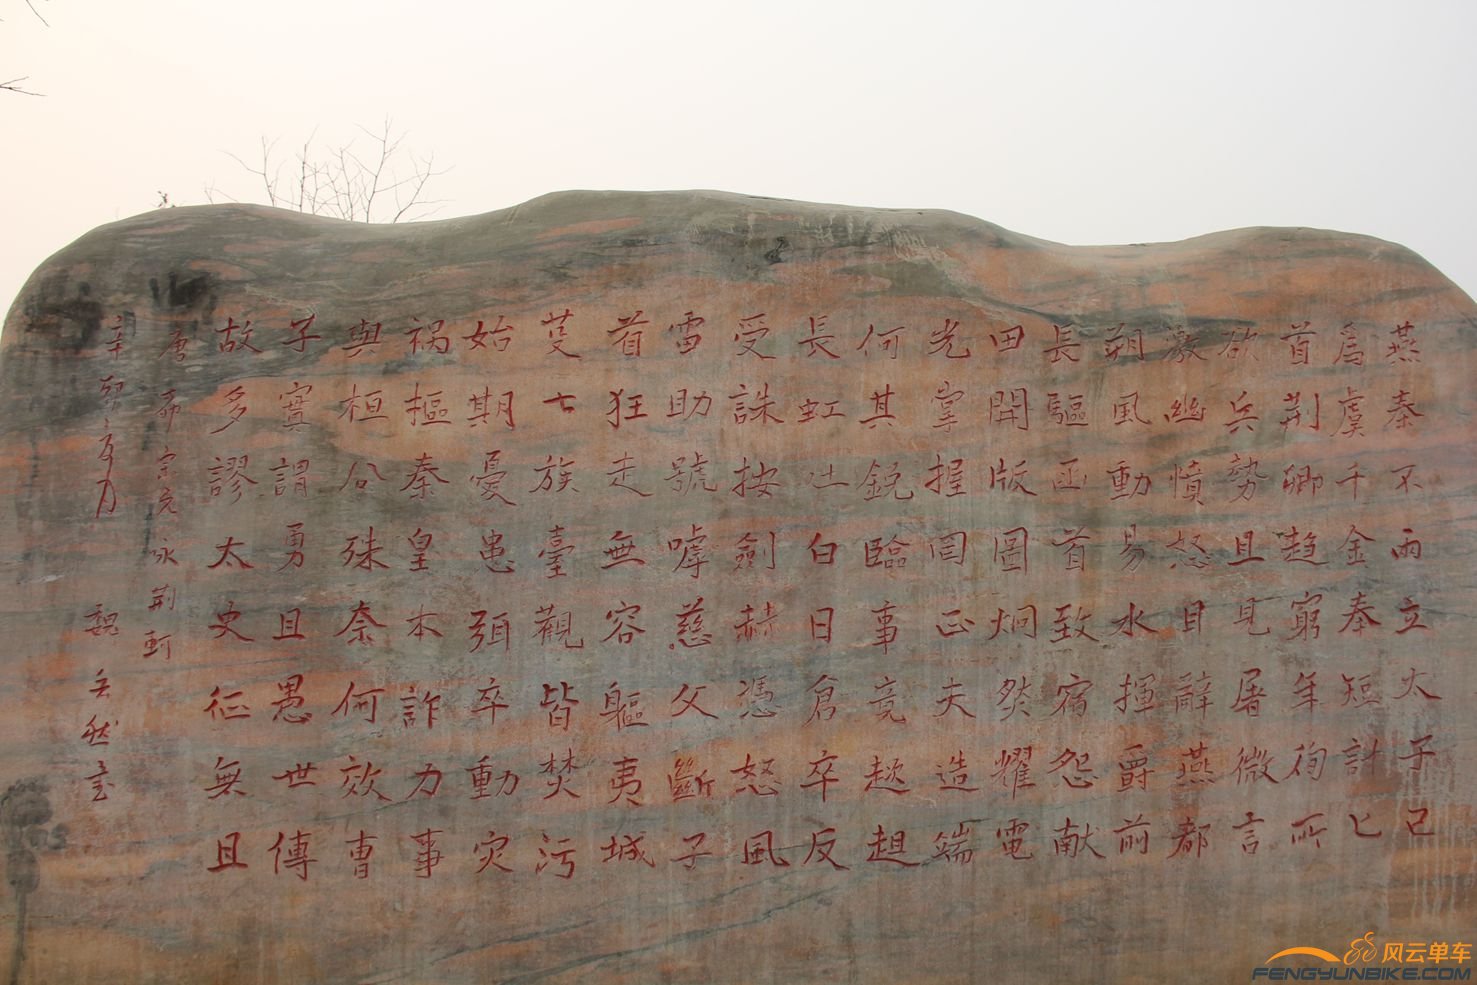 燕秦不兩立太子已
爲虞千金奉短計匕
首荆卿趨窮年徇所
欲兵勢且見屠微言
激幽憤怒目辭燕都
朔風動易水揮爵前
長驅函首致宿怨献
田開版圖炯然耀電
光掌握罔正夫造端
何其鋭臨事竟趑趄
長虹吐白日倉卒反
受誅按劍赫憑怒風
雷助號嘑慈父斷子
首狂走無容軀夷城
芟七族臺觀皆焚污
始期憂患弭卒動灾
祸樞秦皇本詐力事
與桓公殊奈何效曹
子寔謂勇且愚世傳
故多謬太史征無且
唐柳宗元咏荆軻
辛 魏
风云单车
FENGYUNBIKE.COM